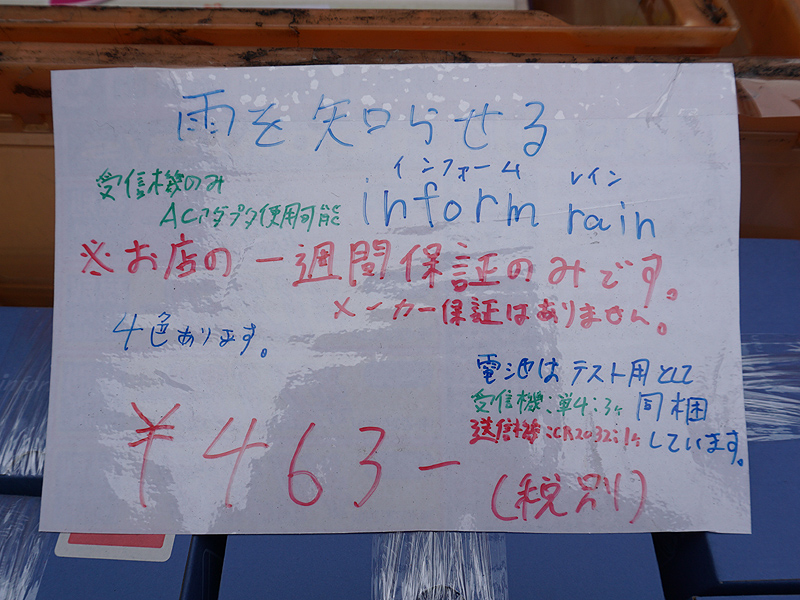 雨を知らせる
インフォーム レイン
inform rain
受信機のみ
ACアダプタ使用可能
※お店の一週間保証のみです。
メーカー保証はありません。
4色あります。
電池はテスト用として
受信機:単4:3ヶ 同梱
送信機:CR2032:1ヶ しています。
¥463ー
(税別)